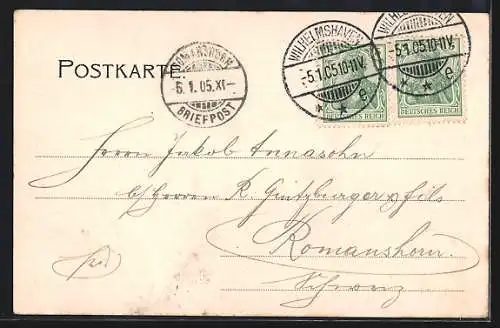 POSTKARTE.
ROMANSHORN
-6.1.05.XI-
BRIEFPOST
WILHELMSHAVEN
-5.1.05.10-11V.
* * e
WILHELMSHAVEN
-5.1.05.10-11V.
* * e
DEUTSCHES REICH
DEUTSCHES REICH
Herrn Jakob Annasohn
b/ Herren R. Gintzburger & fils
Romanshorn.
Schweiz